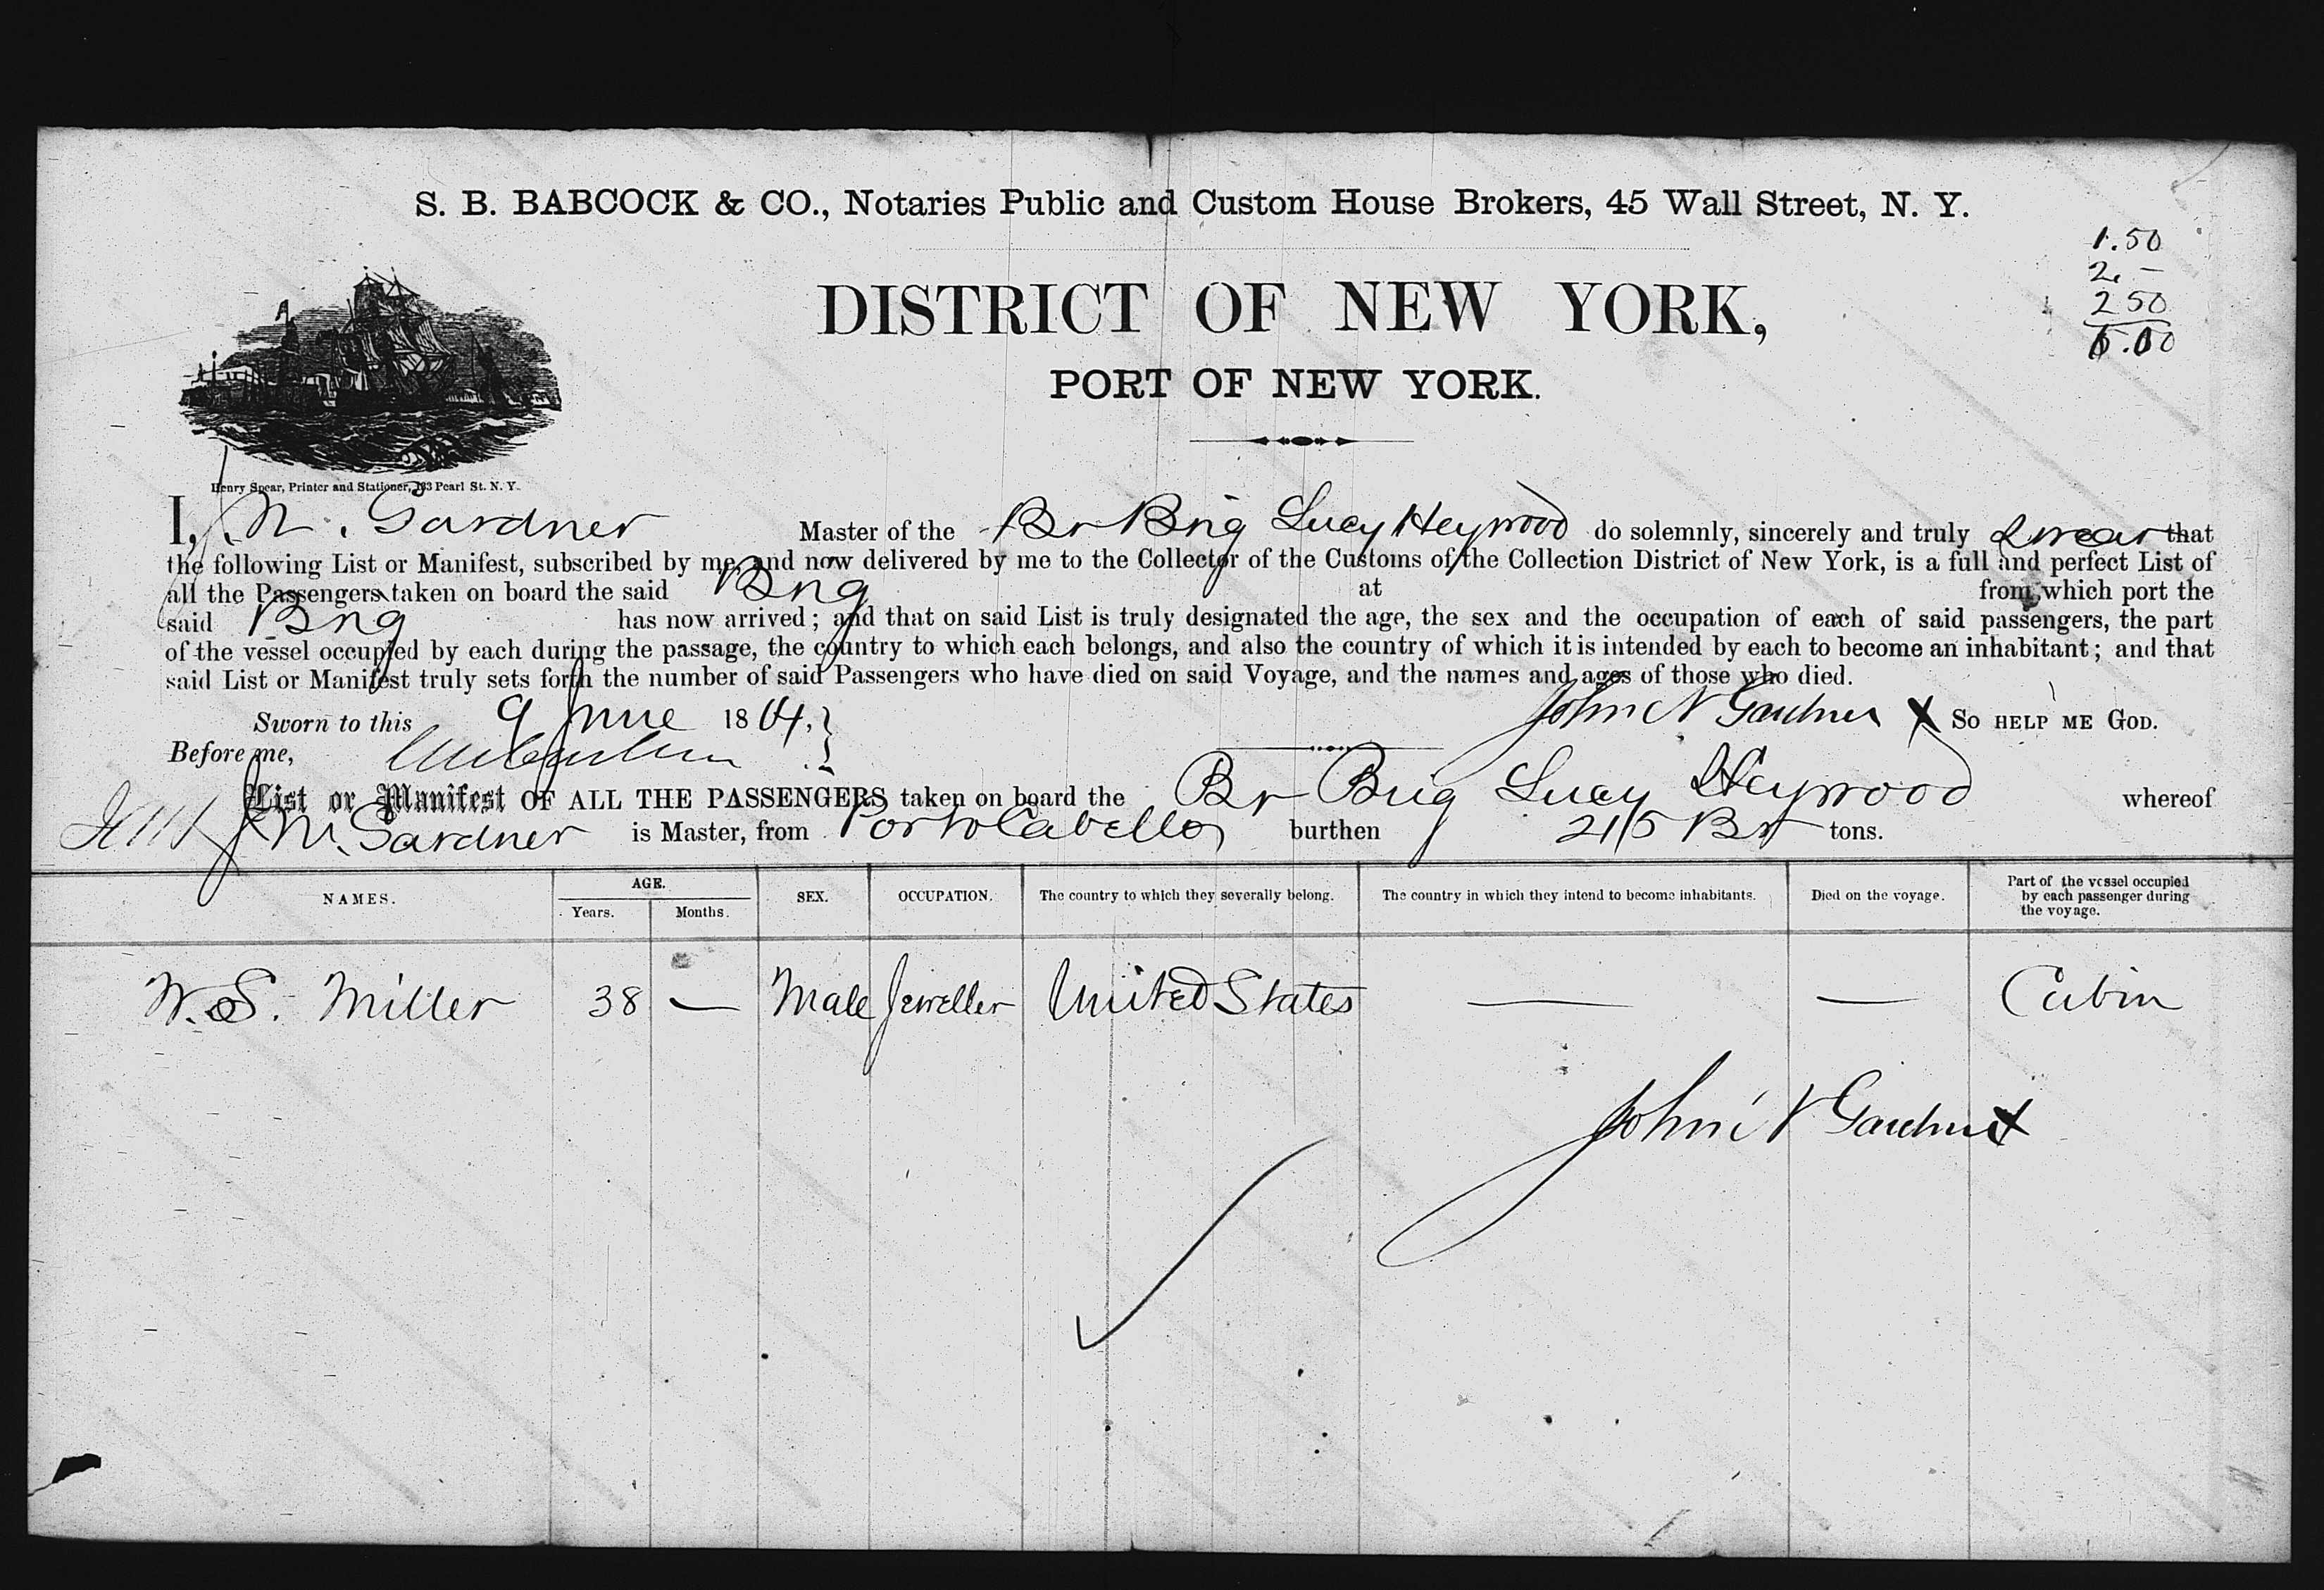 S. B. BABCOCK & CO., Notaries Public and Custom House Brokers, 45 Wall Street, N. Y.
1.50
2. –
2 50
6.00
DISTRICT OF NEW YORK,
PORT OF NEW YORK.
Henry Spear, Printer and Stationer, 133 Pearl St. N. Y.
I, J. N. Gardner Master of the Br Brig Lucy Heywood do solemnly, sincerely and truly swear that
the following List or Manifest, subscribed by me, and now delivered by me to the Collector of the Customs of the Collection District of New York, is a full and perfect List of
all the Passengers taken on board the said Brig at from which port the
said Brig has now arrived; and that on said List is truly designated the age, the sex and the occupation of each of said passengers, the part
of the vessel occupied by each during the passage, the country to which each belongs, and also the country of which it is intended by each to become an inhabitant; and that
said List or Manifest truly sets forth the number of said Passengers who have died on said Voyage, and the names and ages of those who died.
Sworn to this 9 June 1864, John N Gardner X SO HELP ME GOD.
Before me,
List or Manifest OF ALL THE PASSENGERS taken on board the Br Brig Lucy Heywood whereof
J. N. Gardner is Master, from Porto Cabello burthen 215 Br tons.
NAMES. AGE. Years. Months. SEX. OCCUPATION. The country to which they severally belong. The country in which they intend to become inhabitants. Died on the voyage. Part of the vessel occupied by each passenger during the voyage.
W. S. Miller 38 — Male Jeweller United States — — Cabin
John N Gardner X